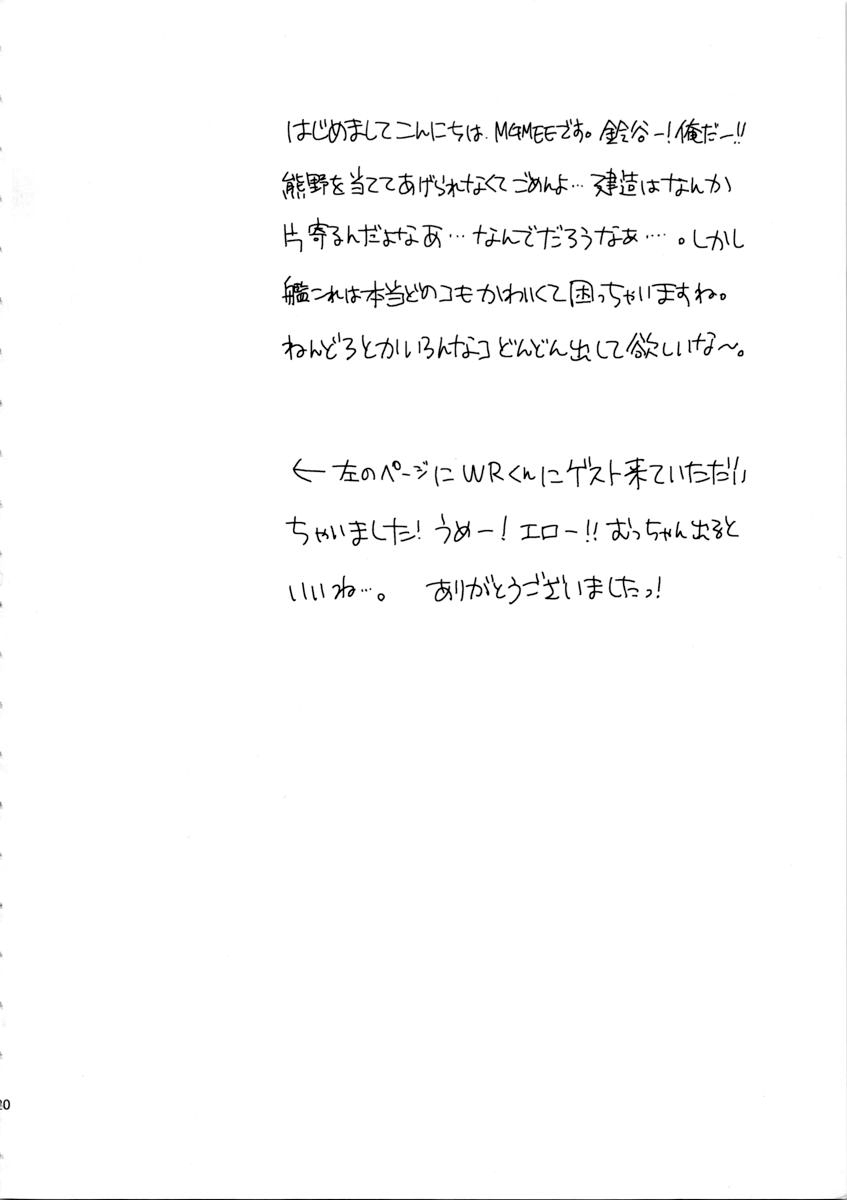 はじめましてこんにちは、M4MEEです。鈴谷ー!俺だー!!
熊野を当ててあげられなくてごめんよ…建造はなんか
片寄るんだよなあ…なんでだろうなぁ…。しかし
艦これは本当どのコもかわいくて困っちゃいますね。
ねんどろとかいろんなコどんどん出して欲しいな〜。
← 左のページにWRくんにゲスト来ていただい
ちゃいました!うめー!エロー!!むっちゃん出ると
いいね…。 ありがとうございましたっ!
20